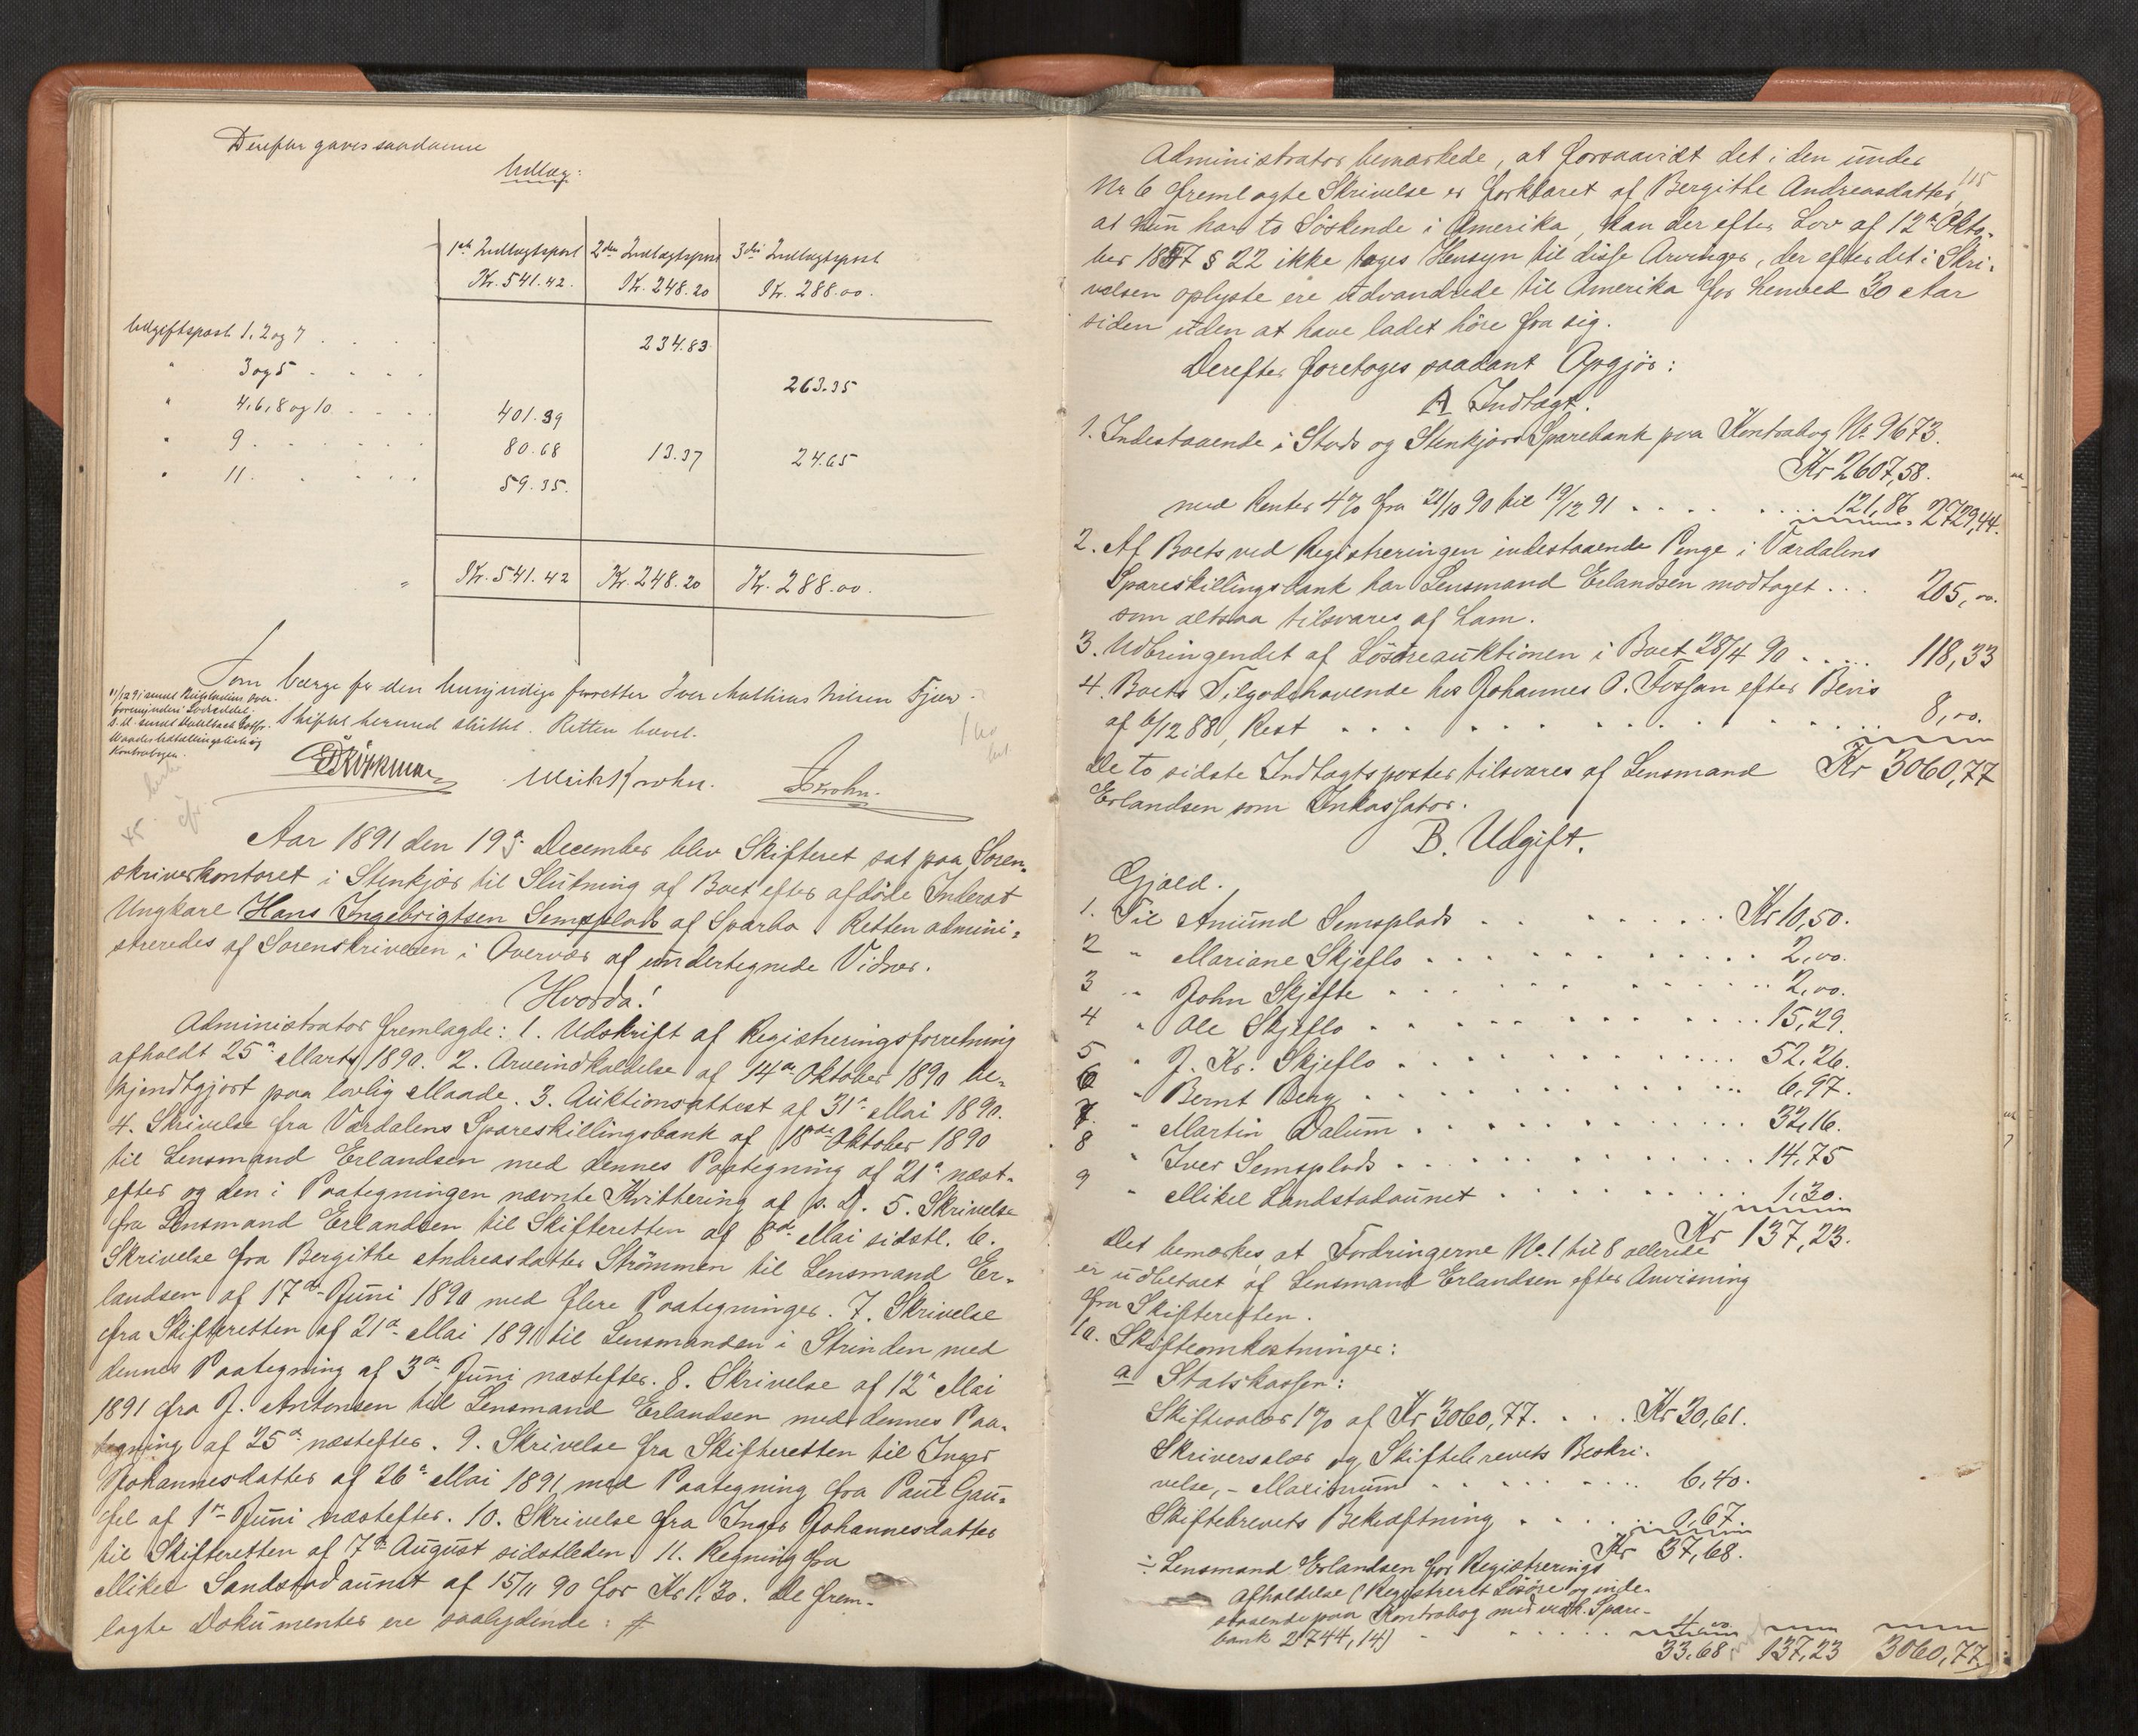 Derefter gaves saadanne
Udlæg:
1ste Indtægtspost 2den Indtægtspost 3die Indtægtspost
Kr. 541.42. Kr. 248.20 Kr. 288.00.
Udgiftspost 1, 2 og 7 . . . . 234.83
" 3 og 5 . . . . 263.35
" 4, 6, 8 og 10 . . . . 401.39
" 9 . . . . . . 80.68 13.37 24.65
" 11 . . . . . 59.35.
" Kr. 541.42 Kr. 248.20 Kr. 288.00.
Som Værge for den umyndige fores Iver Mathias Nilsen Fjær
Skiftet hermed sluttet. Retten hævet.
Kontrabogen.
Ulrik Krohn. Krohn.
Aar 1891 den 19de December blev Skifteret sat paa Soren-
skriverkontoret i Stenkjær til Slutning af Boet efter afdöde Inderst
Ungkarl Hans Ingebrigtsen Semsplads af Sparbo. Retten admini-
streredes af Sorenskriveren i Overvær af undertegnede Vidner.
Hvorda!
Administrator fremlagde: 1. Udskrift af Registreringsforretning
afholdt 25de Marts 1890. 2. Arveindkaldelse af 14de Oktober 1890 be-
kjendtgjort paa lovlig Maade. 3. Auktionsattest af 31te Mai 1890.
4. Skrivelse fra Værdalens Spareskillingsbank af 18de Oktober 1890
til Lensmand Erlandsen med dennes Paategning af 21de næst-
efter og den i Paategningen nævnte Kvittering af s. D. 5. Skrivelse
fra Lensmand Erlandsen til Skifteretten af 8de Mai sidstl. 6.
Skrivelse fra Bergithe Andreasdatter Strömmen til Lensmand Er-
landsen af 17de Juni 1890 med flere Paategninger. 7. Skrivelse
fra Skifteretten af 21de Mai 1891 til Lensmanden i Strinden med
dennes Paategning af 3die Juni næstefter. 8. Skrivelse af 12te Mai
1891 fra J. Antonsen til Lensmand Erlandsen med dennes Paa-
tegning af 25de næstefter. 9. Skrivelse fra Skifteretten til Inger
Johannesdatter af 26de Mai 1891 med Paategning fra Paul Gau-
fel af 1ste Juni næstefter. 10. Skrivelse fra Inger Johannesdatter
til Skifteretten af 7de August sidstleden. 11. Regning fra
Mikal Landstadaunet af 15/11 90 for Kr 1.30. De frem-
lagte Dokumenter ere saalydende: #
115
Administrator bemærkede, at forsaavidt det i den under
Nr 6 fremlagte Skrivelse er forklaret af Bergithe Andreasdatter
at hun har to Söskende i Amerika, kan der efter Lov af 12te Okto-
ber 1857 § 22 ikke tages Hensyn til disse Arvinger, der efter det i Skri-
velsen oplyste ere udvandrede til Amerika for henved 30 Aar
siden uden at have ladet höre fra sig.
Derefter foretoges saadant Opgjör:
A Indtægt.
1. Indestaaende i Stods og Stenkjærs Sparebank paa Kontrabog No 9673.
Kr 2607,58.
med Renter 4% fra 21/10 90 til 19/12 91 . . . . . . 121,86 2729,44.
2. Af Boets ved Registreringen indestaaende Penge i Værdalens
Spareskillingsbank har Lensmand Erlandsen modtaget . . . 205,00.
som altsaa tilsvares af ham.
3. Udbringendet af Lösöreauktionen i Boet 28/4 90 . . . . . 118,33
4. Boets Tilgodehavende hos Johannes O. Fossan efter Bevis
af 6/12 88, Rest . . . . . . . . . . 8,00.
De to sidste Indtægtsposter tilsvares af Lensmand Kr 3060,77
Erlandsen som Inkassator.
B. Udgift.
Gjæld.
1. Til Amund Semsplads . . . . . . . Kr 10,50.
2 " Mariane Skjeflo . . . . . . . . . 2,00.
3 " John Skjefte . . . . . . . . . 2,00.
4 " Ole Skjeflo . . . . . . . . . 15,29.
5 " J. Kr. Skjeflo . . . . . . . . 52.26.
6 " Bernt Berg . . . . . . . . . 6,97.
7. " Martin Dalum . . . . . . . . 32,16.
8 " Iver Semsplads . . . . . . . . 14,75
9 " Mikal Landstadaunet . . . . . . 1,30.
Kr 137,23.
Det bemærkes, at Fordringerne No. 1 til 8 allerede
er udbetalt af Lensmand Erlandsen efter Anvisning
fra Skifteretten.
10. Skifteomkostninger:
a Statskassen:
Skiftesalær 1% af Kr 3060,77. . . . Kr 30,61.
Skriversalær og Skiftebrevets Beskri-
velse, - Maximum . . . . . . . 6,40.
Skiftebrevets Bekræftning . . . . . 0,67.
Kr 37,68.
÷ Lensmand Erlandsen for Registrerings
Afholdelse (Registreret Lösöre og inde-
staaende paa Kontrabog med Spare-
bank 2744,14) . . . . . . 4,00
33.68 137,23 3060,77.